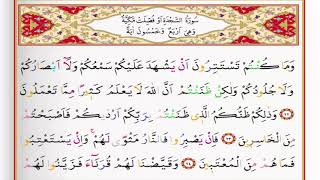 سُورَةُ السَّجْدَةِ اَوْ فُصِّلَتْ مَكِّيَّةٌ
وَهِيَ اَرْبَعٌ وَخَمْسُونَ اٰيَةً
وَمَا كُنْتُمْ تَسْتَتِرُونَ اَنْ يَشْهَدَ عَلَيْكُمْ سَمْعُكُمْ وَلَٓا اَبْصَارُكُمْ
وَلَا جُلُودُكُمْ وَلٰكِنْ ظَنَنْتُمْ اَنَّ اللّٰهَ لَا يَعْلَمُ كَث۪يرًا مِمَّا تَعْمَلُونَ
﴿٢٢﴾ وَذٰلِكُمْ ظَنُّكُمُ الَّذ۪ي ظَنَنْتُمْ بِرَبِّكُمْ اَرْدٰيكُمْ فَاَصْبَحْتُمْ
مِنَ الْخَاسِر۪ينَ ﴿٢٣﴾ فَاِنْ يَصْبِرُوا فَالنَّارُ مَثْوًى لَهُمْ وَاِنْ يَسْتَعْتِبُوا
فَمَا هُمْ مِنَ الْمُعْتَب۪ينَ ﴿٢٤﴾ وَقَيَّضْنَا لَهُمْ قُرَنَٓاءَ فَزَيَّنُوا لَهُمْ